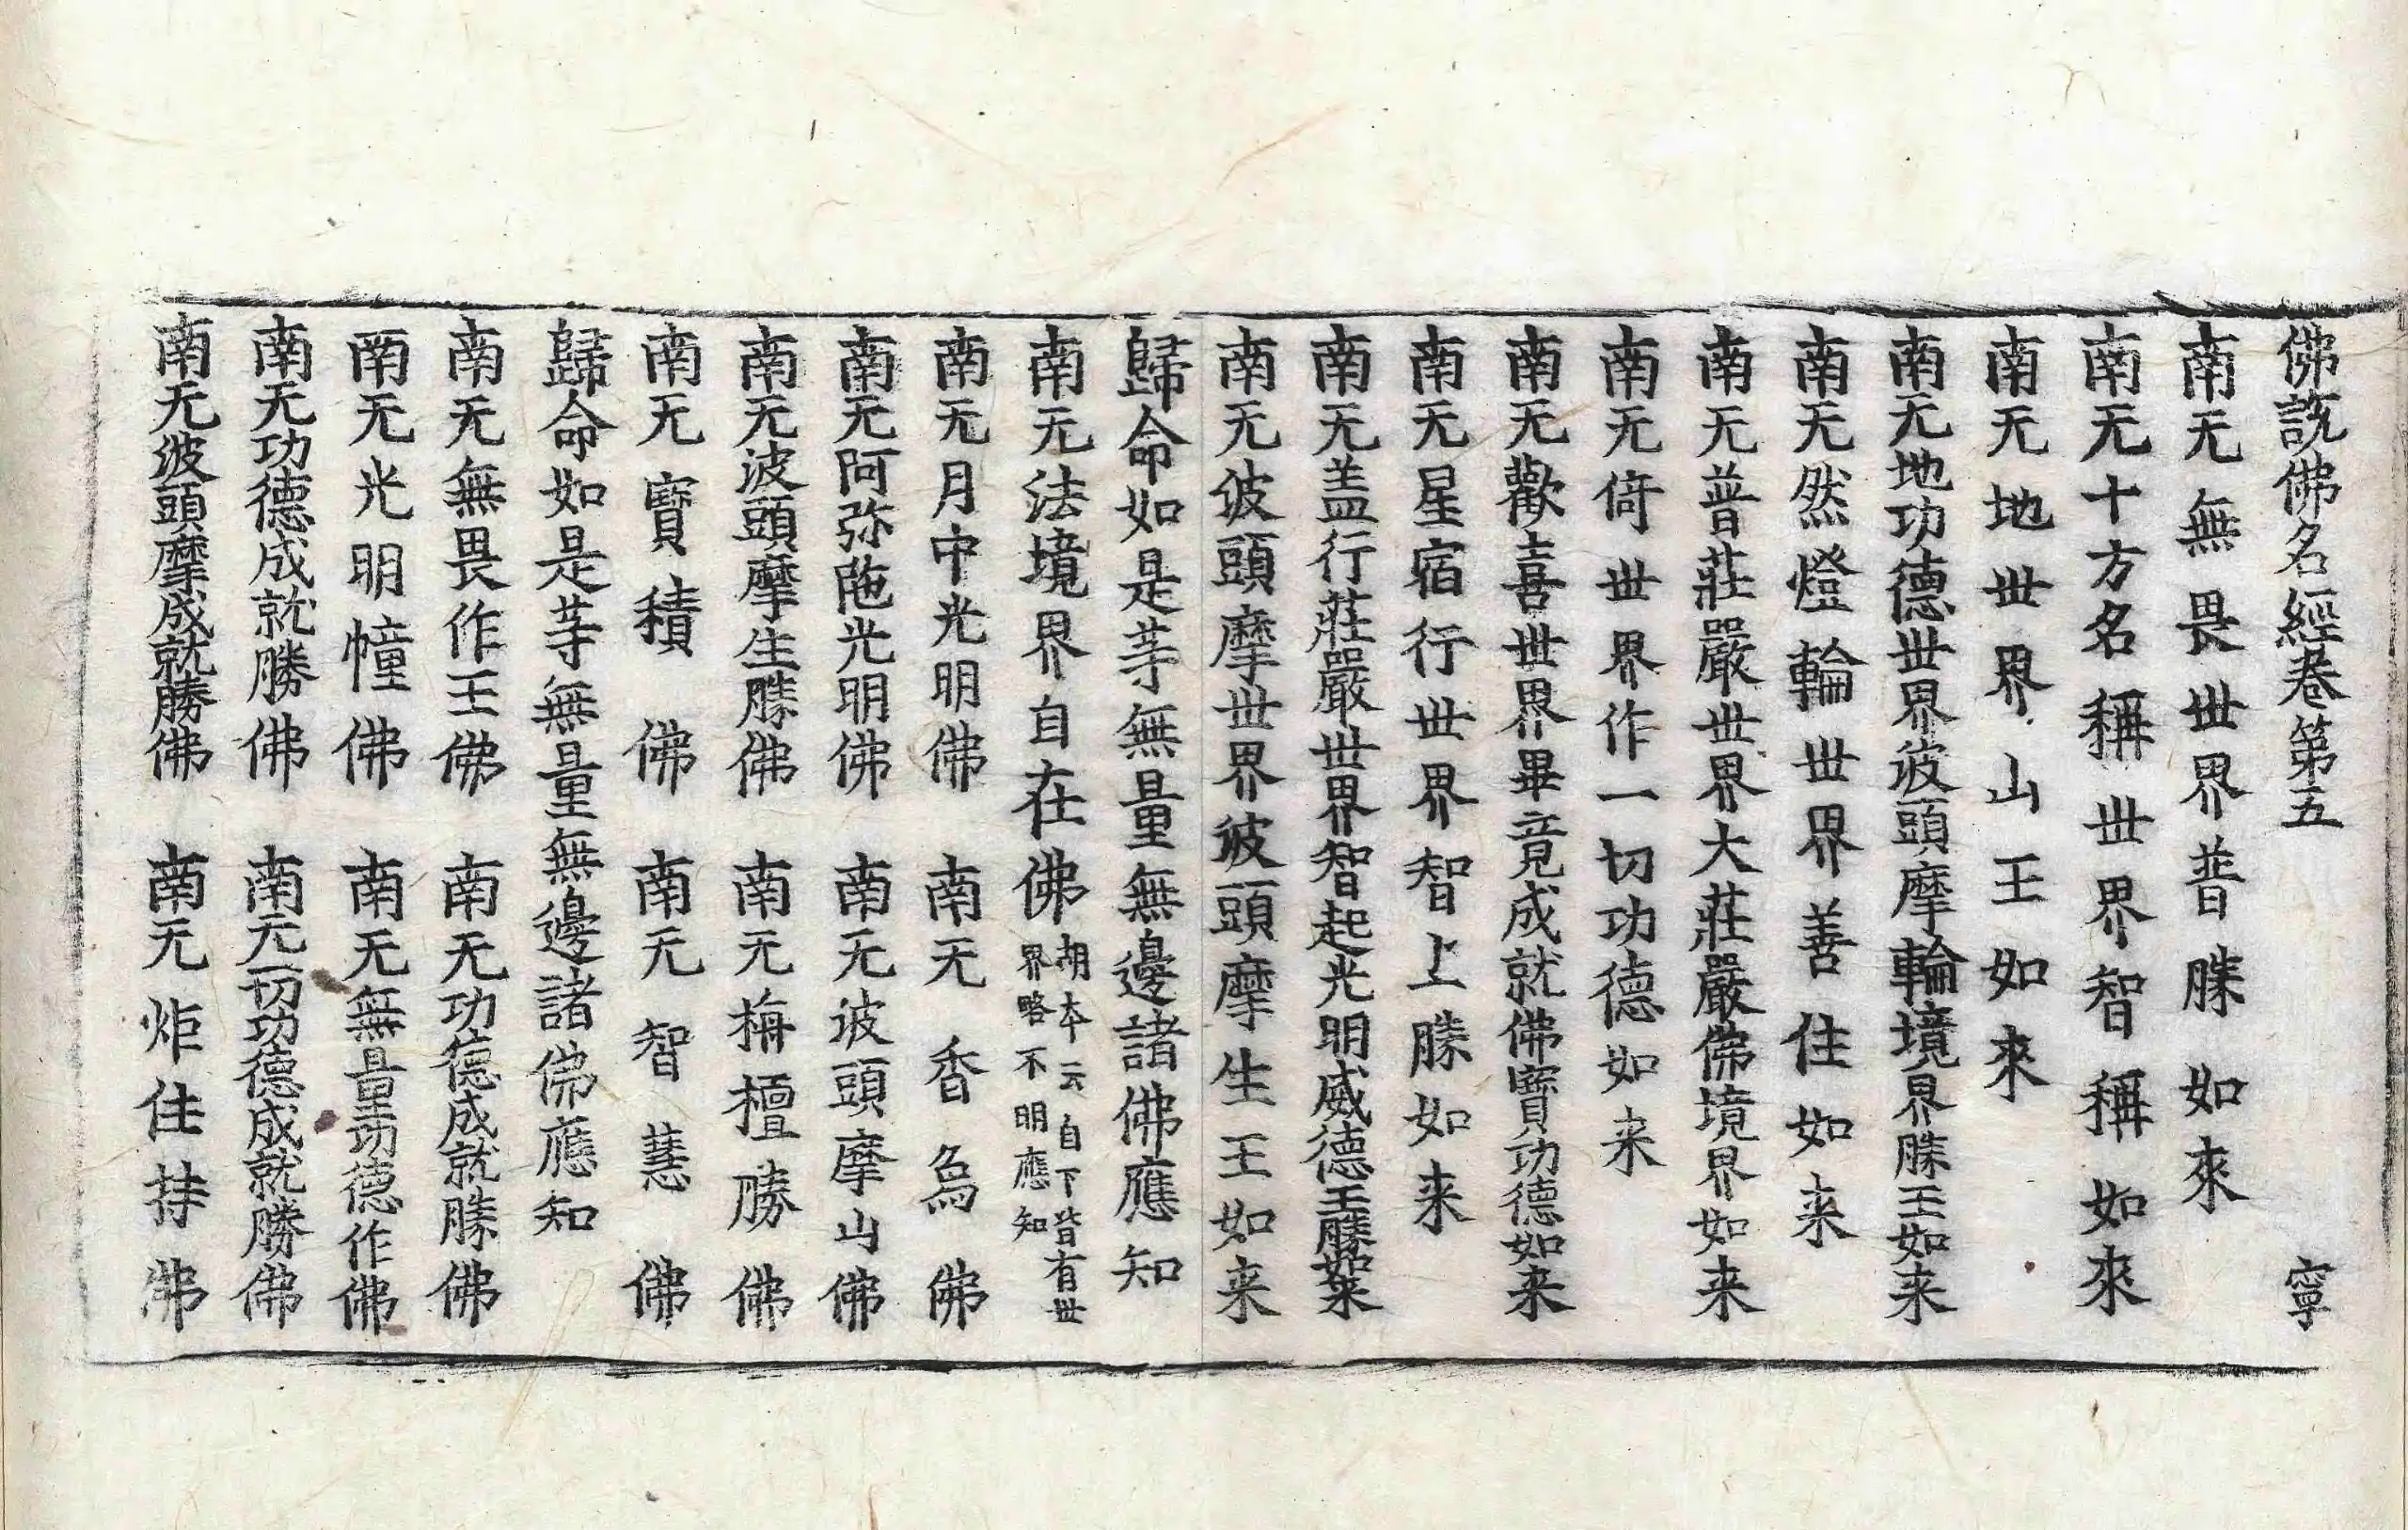 佛說佛名經卷第五 寧
南无無畏世界普勝如來
南无十方名稱世界智稱如來
南无地世界山王如來
南无地功德世界波頭摩輪境界勝王如来
南无然燈輪世界善住如来
南无普莊嚴世界大莊嚴佛境界如来
南无倚世界作一切功德如来
南无歡喜世界畢竟成就佛寶功德如来
南无星宿行世界智上勝如来
南无盖行莊嚴世界智起光明威德王勝如来
南无波頭摩世界波頭摩生王如来
歸命如是等無量無邊諸佛應知
南无法境界自在佛 胡本云自下皆有世
界略不明應知
南无月中光明佛 南无香烏佛
南无阿弥陁光明佛 南无波頭摩山佛
南无波頭摩生勝佛 南无栴檀勝佛
南无寶積佛 南无智慧佛
歸命如是等無量無邊諸佛應知
南无無畏作王佛 南无功德成就勝佛
南无光明幢佛 南无無量功德作佛
南无功德成就勝佛 南无一切功德成就勝佛
南无波頭摩成就勝佛 南无炬住持佛